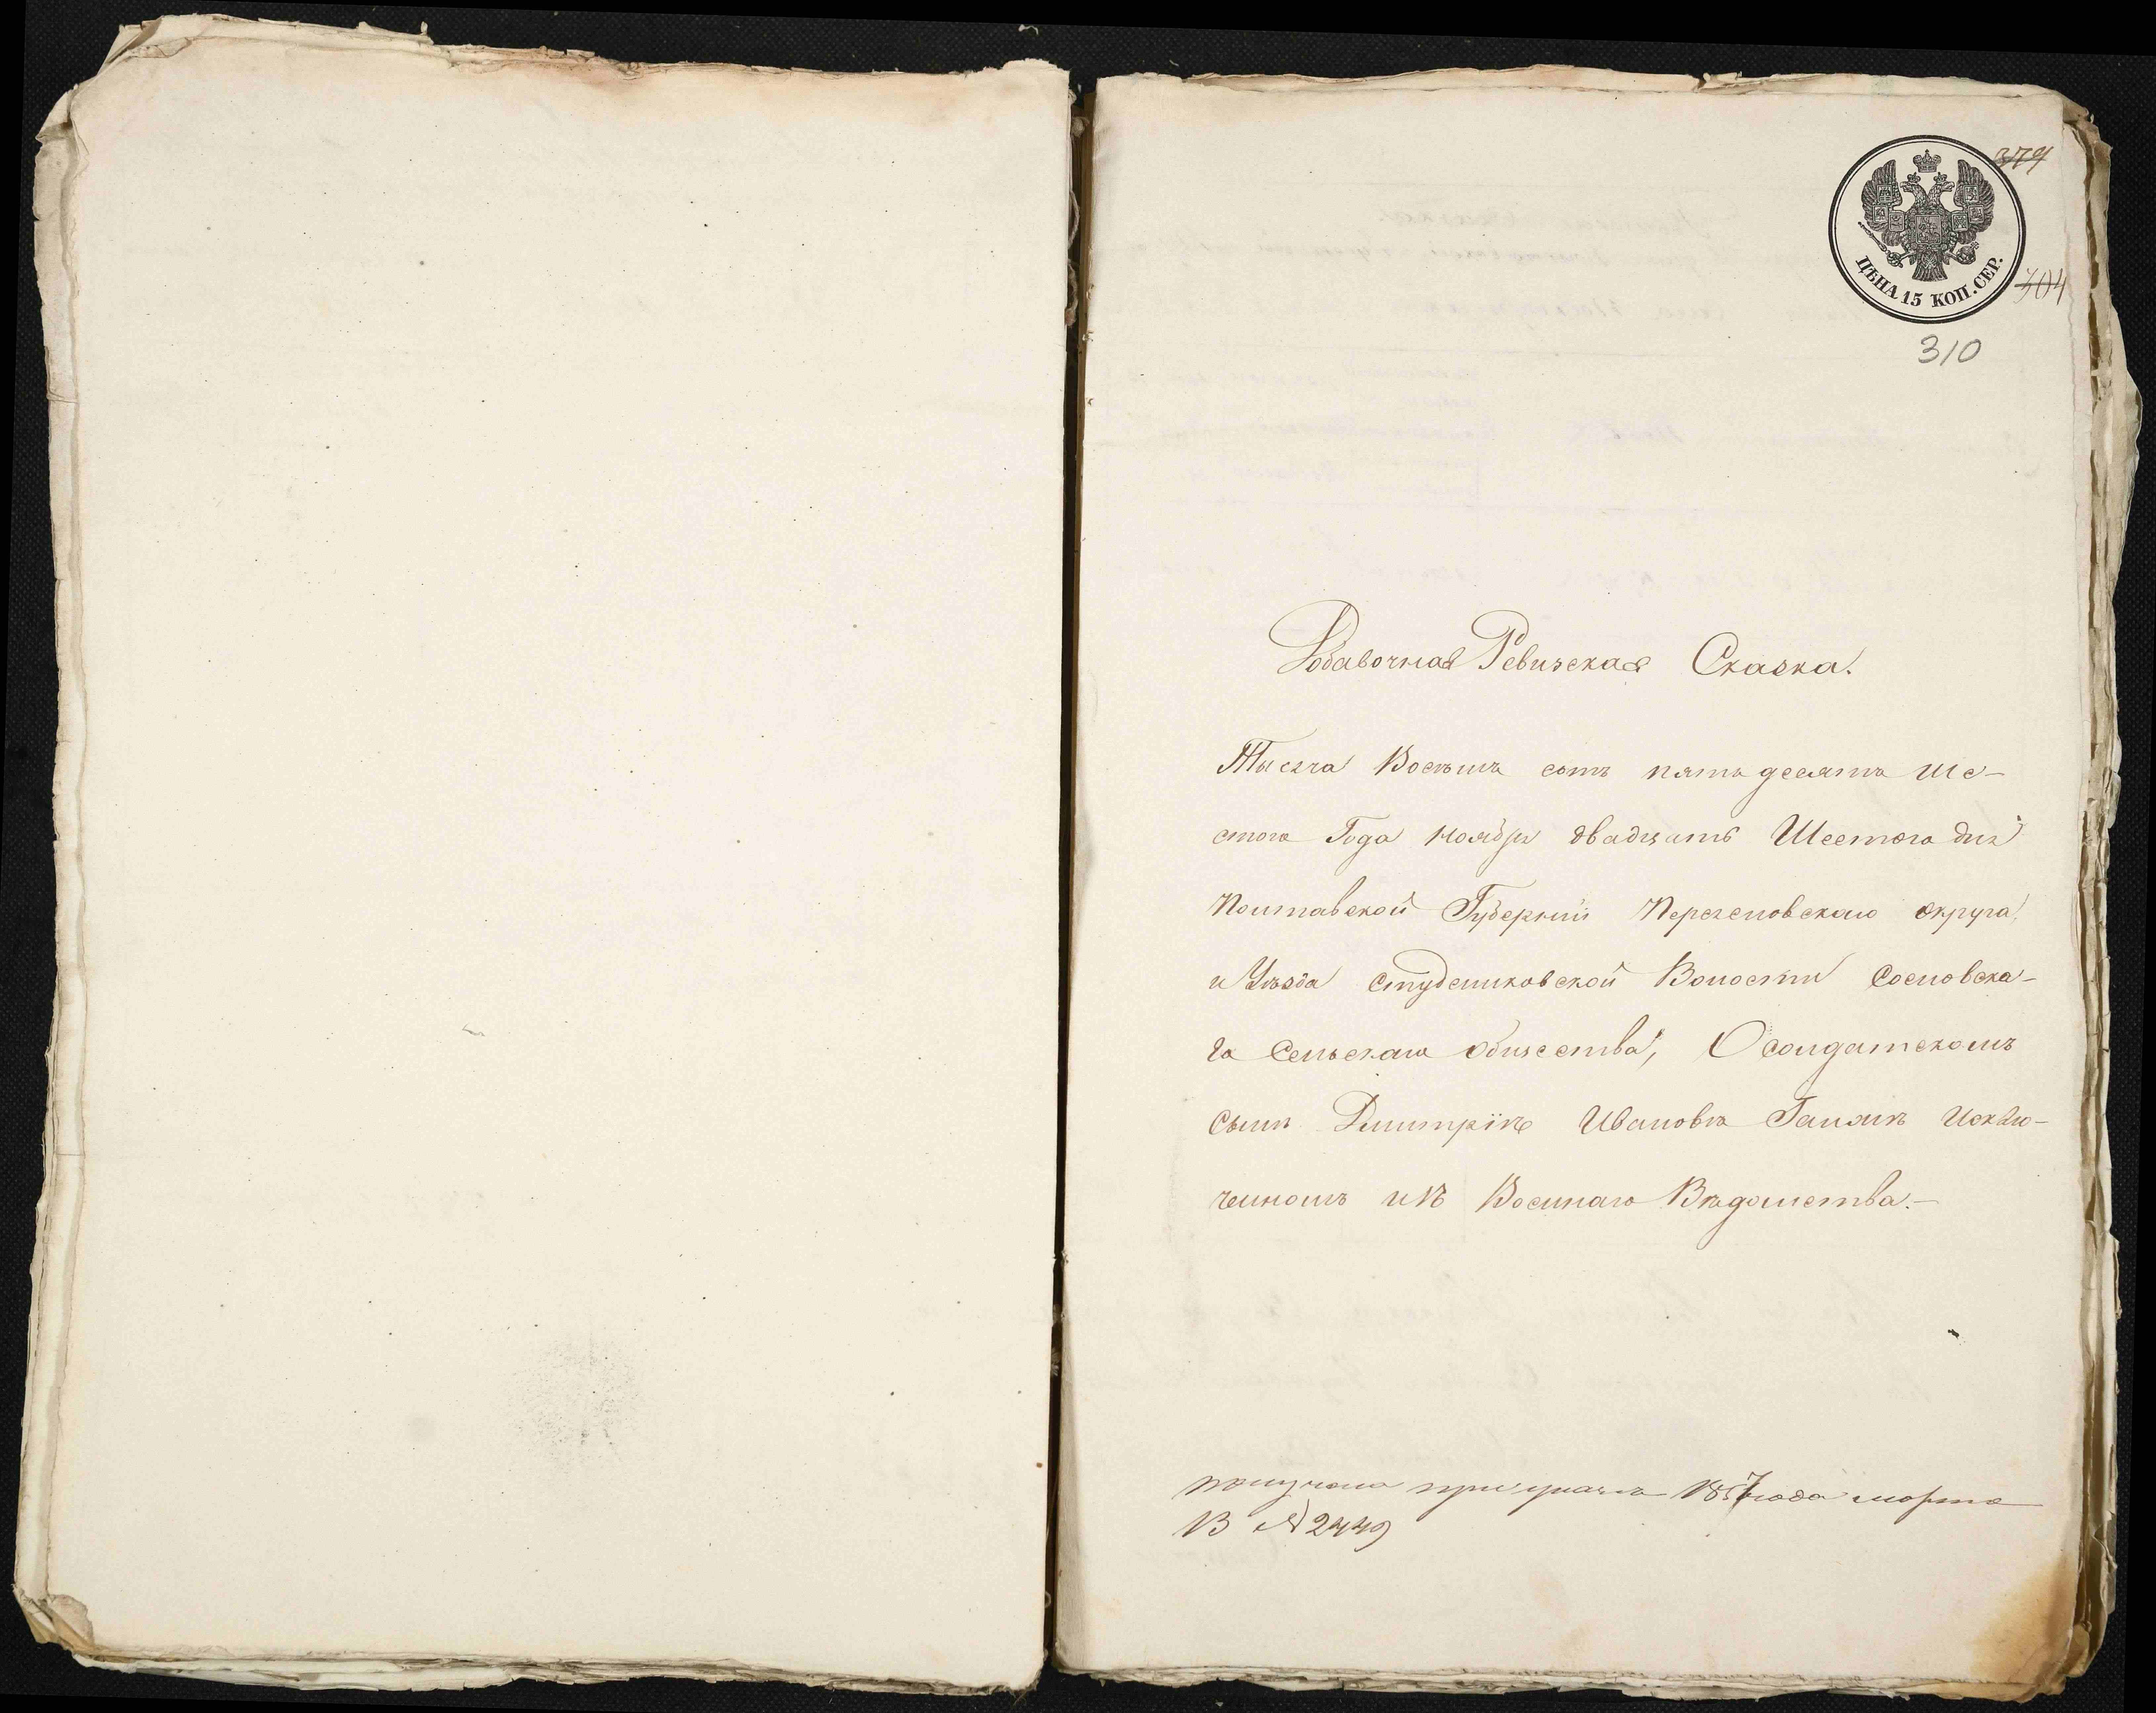 379
ЦѢНА 15 КОП. СЕР.
304
310
Добавочная Ревизская Сказка.
Тысяча Восемь сотъ пятьдесятъ ше-
стого Года ноября двадцать Шестого дня
Полтавской Губерніи Переясловскаго округа,
и Уѣзда Студениковской Волости Сосновска-
го Сельскаго общества, О солдатскомъ
сынѣ Дмитріѣ Ивановѣ Галякѣ исклю-
ченномъ изъ Военнаго Вѣдомства.-
получена при указѣ 1857 года марта
13 № 2449